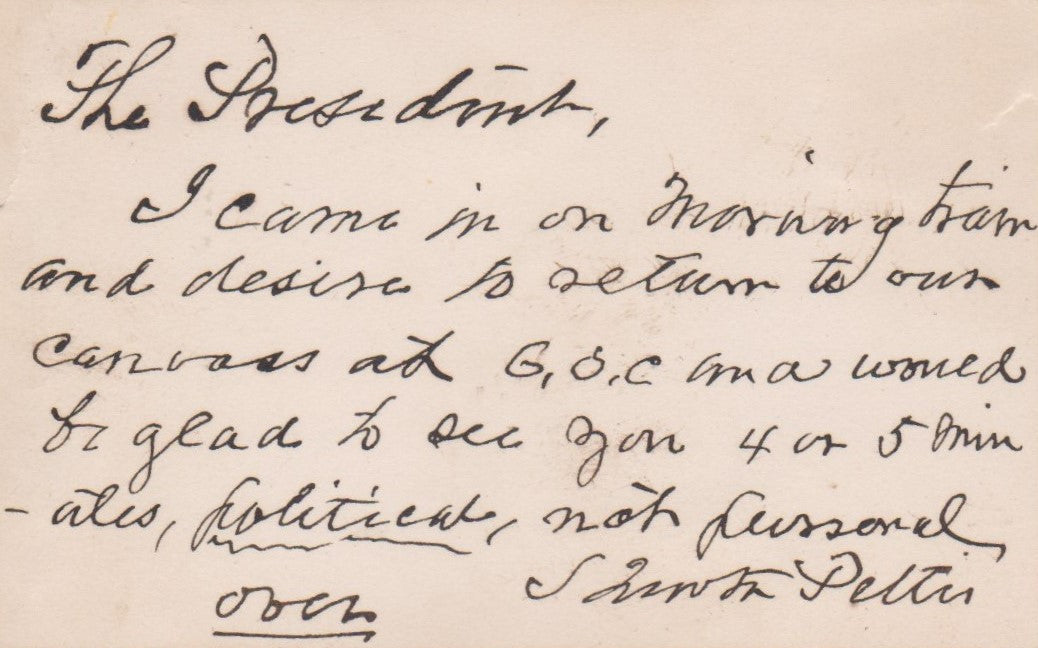 The President,
I came in on morning train
and desire to return to our
canvass at 6, O, C and would
be glad to see you 4 or 5 min
-utes, political, not personal
S Newton Pettis
over